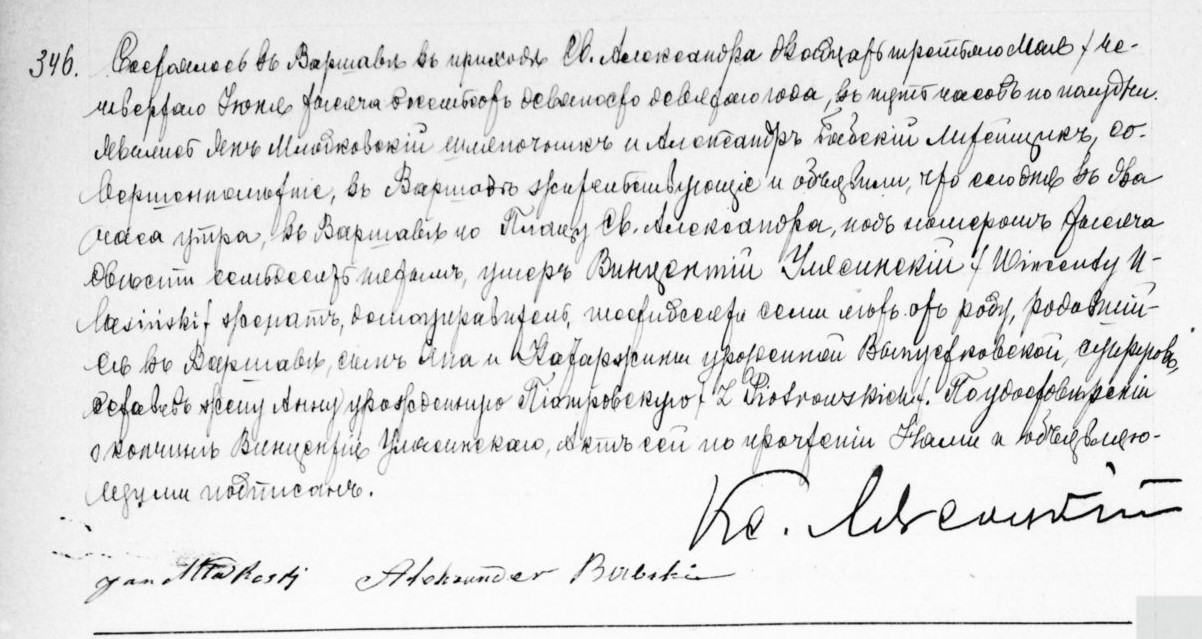 346. Состоялось въ Варшавѣ въ приходѣ Св. Александра двадцать третьяго Мая / че-
твертаго Іюня тысяча восемьсотъ девяносто девятаго года, въ пять часовъ по полудни.
Явились Янъ Млодковскій шляпочникъ и Александръ Бабскій литейщикъ, со-
вершеннолѣтніе, въ Варшавѣ жительствующіе и объявили, что сегодня въ два
часа утра, въ Варшавѣ по Плацу Св. Александра, подъ номеромъ тысяча
двѣсти семьдесятъ умеръ Винцентій Улясинскій / Wincenty U-
lasiński / женатъ, домоуправитель, шестидесяти семи лѣтъ отъ роду, родившій-
ся въ Варшавѣ, сынъ Яна и Катаржины урожденной супруговъ,
оставивъ жену Анну урожденную Піотровскую / z Piotrowskich /. По удостовѣреніи
о кончинѣ Винцентія Улясинскаго, Актъ сей по прочтеніи Нами и объявляю-
щими подписанъ.
Кс.
Jan Aleksander Babski